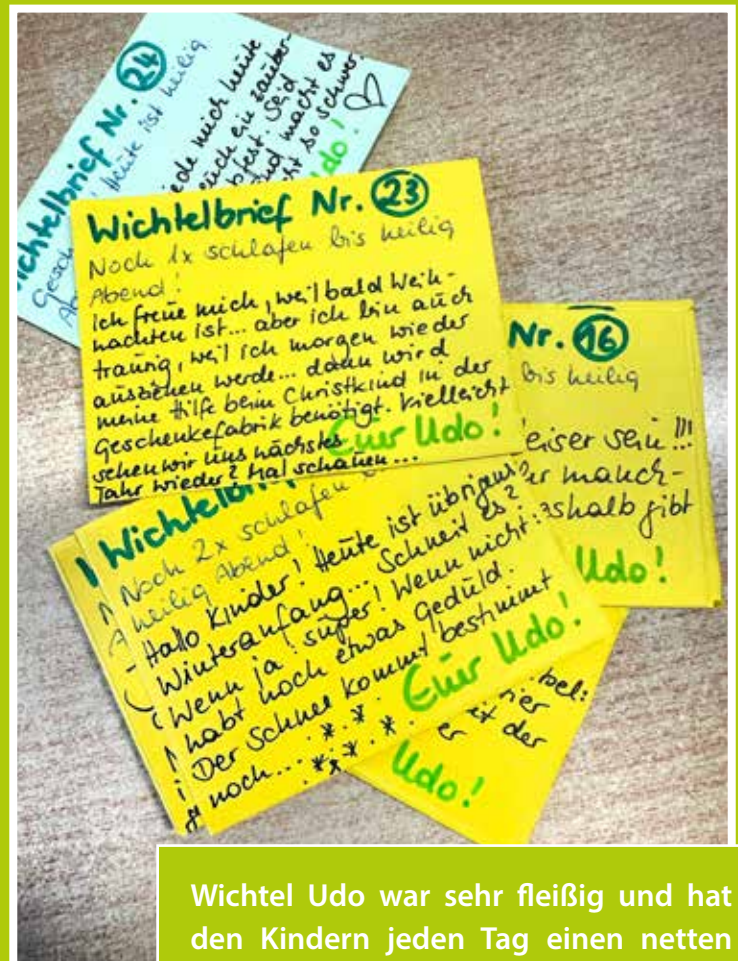 Wichtelbrief Nr. 24
heute ist heilig
ede mich heute
euch ein zauber-
bfest. Seid
und macht es
cht so schwer.
Udo!
Wichtelbrief Nr. 23
Noch 1x schlafen bis heilig
Abend!
Ich freue mich, weil bald Weih-
nachten ist... aber ich bin auch
traurig, weil ich morgen wieder
ausziehen werde... dann wird
meine Hilfe beim Christkind in der
Geschenkefabrik benötigt. Vielleicht
sehen wir uns nächstes
Jahr wieder? Mal schauen...
Euer Udo!
Nr. 16
bis heilig
eiser sein!!!
er manch-
eshalb gibt
Udo!
Wichtelbrief
Noch 2x schlafen
heilig Abend!
Hallo Kinder! Heute ist übrigens
Winteranfang... Schneit es?
Wenn ja: super! Wenn nicht:
habt noch etwas Geduld.
Der Schnee kommt bestimmt
noch...
Euer Udo!
bel:
der
Udo!
Wichtel Udo war sehr fleißig und hat
den Kindern jeden Tag einen netten